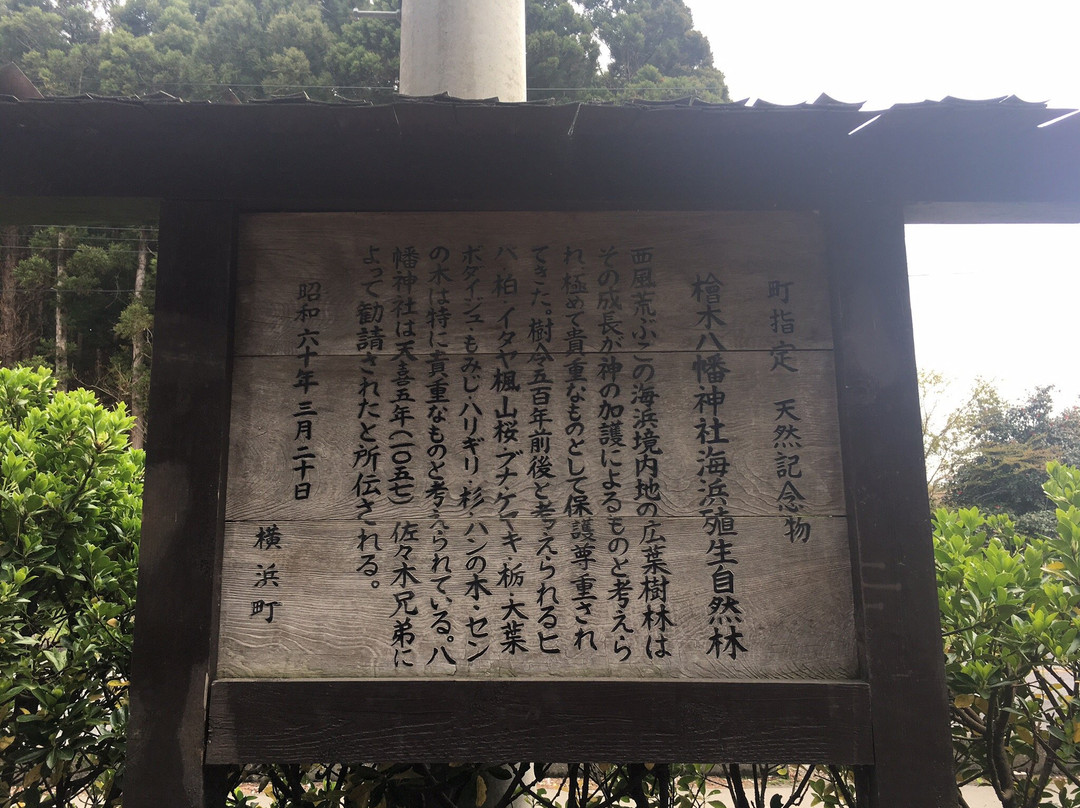 町指定 天然記念物
檜木八幡神社海浜殖生自然林
西風荒ぶこの海浜境内地の広葉樹林は
その成長が神の加護によるものと考えら
れ、極めて貴重なものとして保護尊重され
てきた。樹令五百年前後と考えられるヒ
バ・柏・イタヤ楓・山桜・ブナ・ケヤキ・栃・大葉
ボダイジュ・もみじ・ハリギリ・杉・ハンの木・セン
の木は特に貴重なものと考えられている。八
幡神社は天喜五年(一〇五七) 佐々木兄弟に
よって勧請されたと所伝される。
昭和六十年三月二十日
横浜町